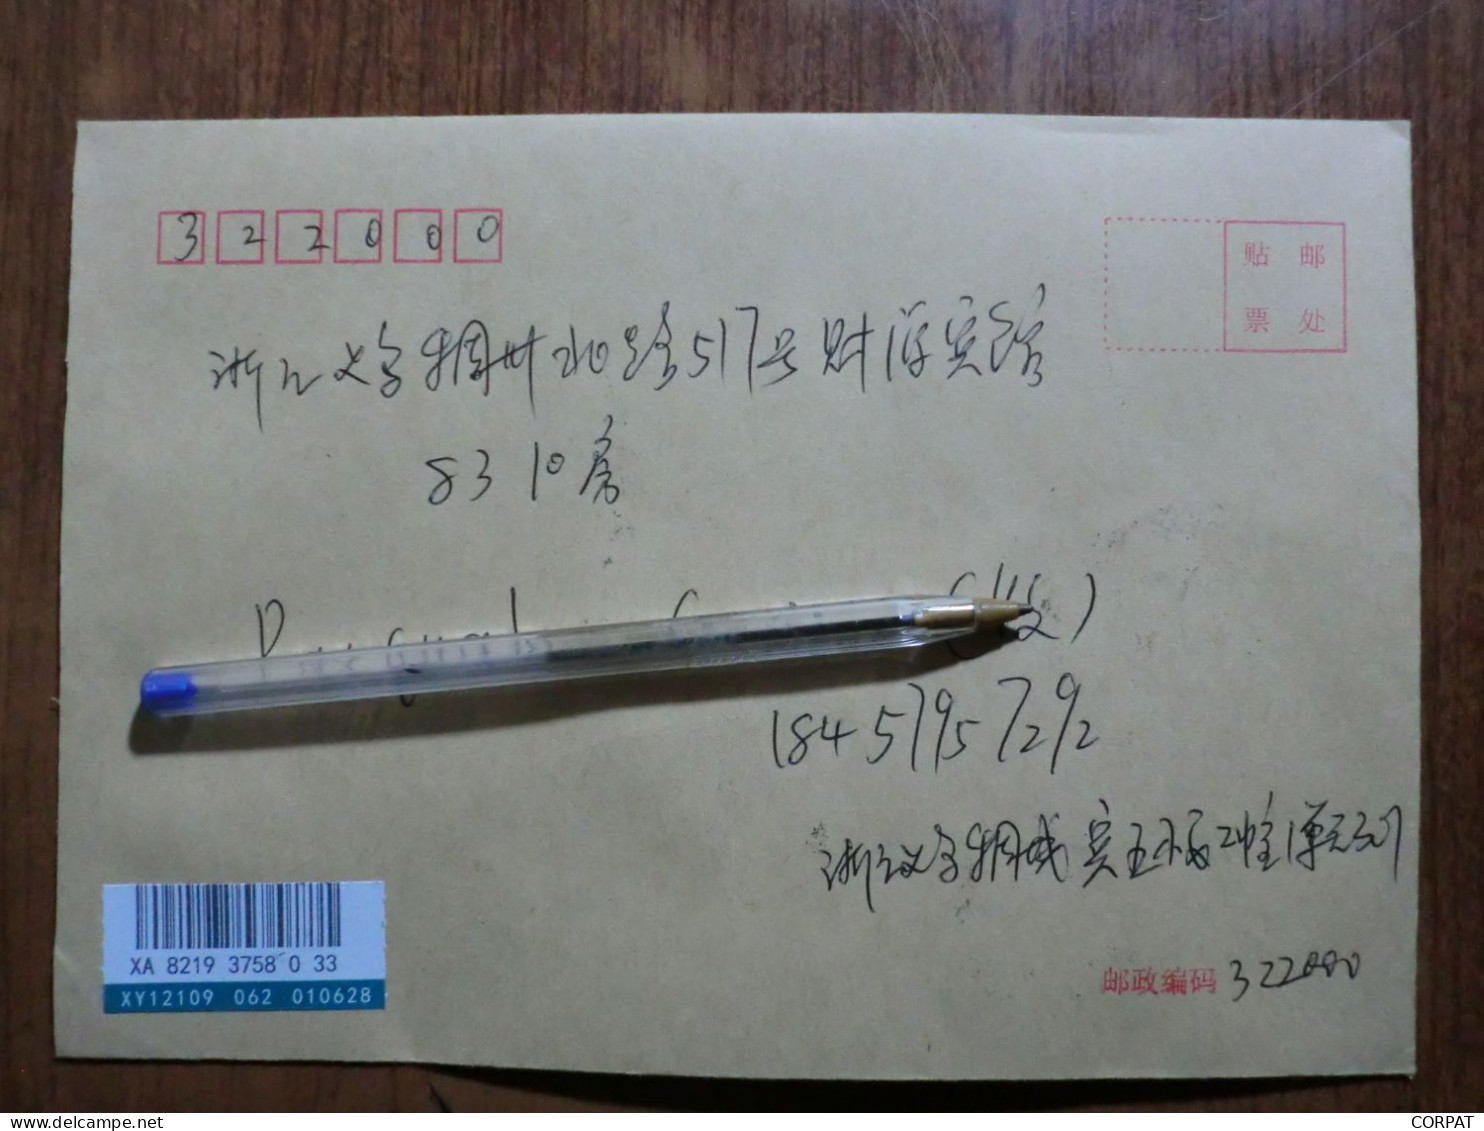 322000
贴 邮
票 处
浙江义乌稠州北路517号财源宾馆
8310房
(收)
18457957292
浙江义乌稠城宾王
邮政编码 322000
XA 8219 3758 0 33
XY12109 062 010628
www.delcampe.net
CORPAT